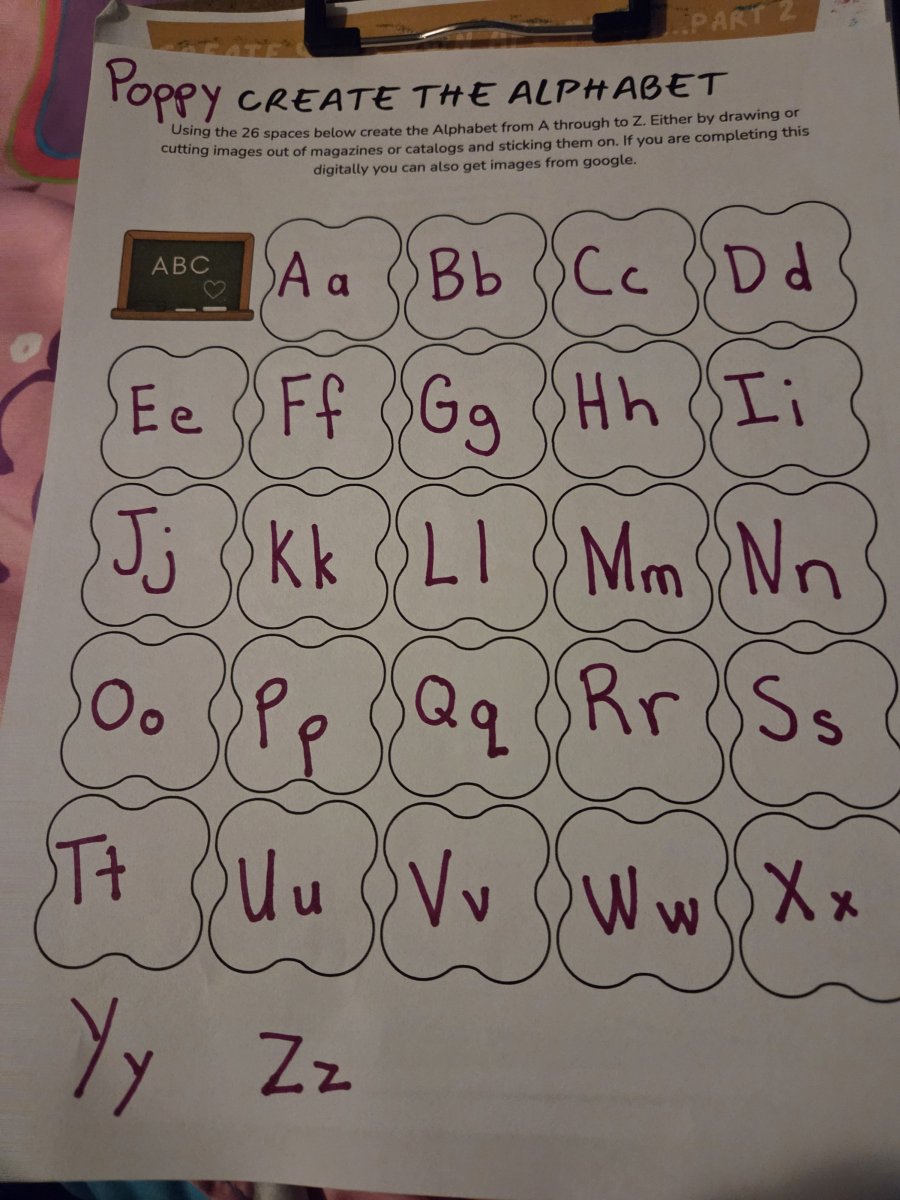 ...PART 2
Poppy CREATE THE ALPHABET
Using the 26 spaces below create the Alphabet from A through to Z. Either by drawing or
cutting images out of magazines or catalogs and sticking them on. If you are completing this
digitally you can also get images from google.
ABC Aa Bb Cc Dd
Ee Ff Gg Hh Ii
Jj Kk Ll Mm Nn
Oo Pp Qq Rr Ss
Tt Uu Vv Ww Xx
Yy Zz